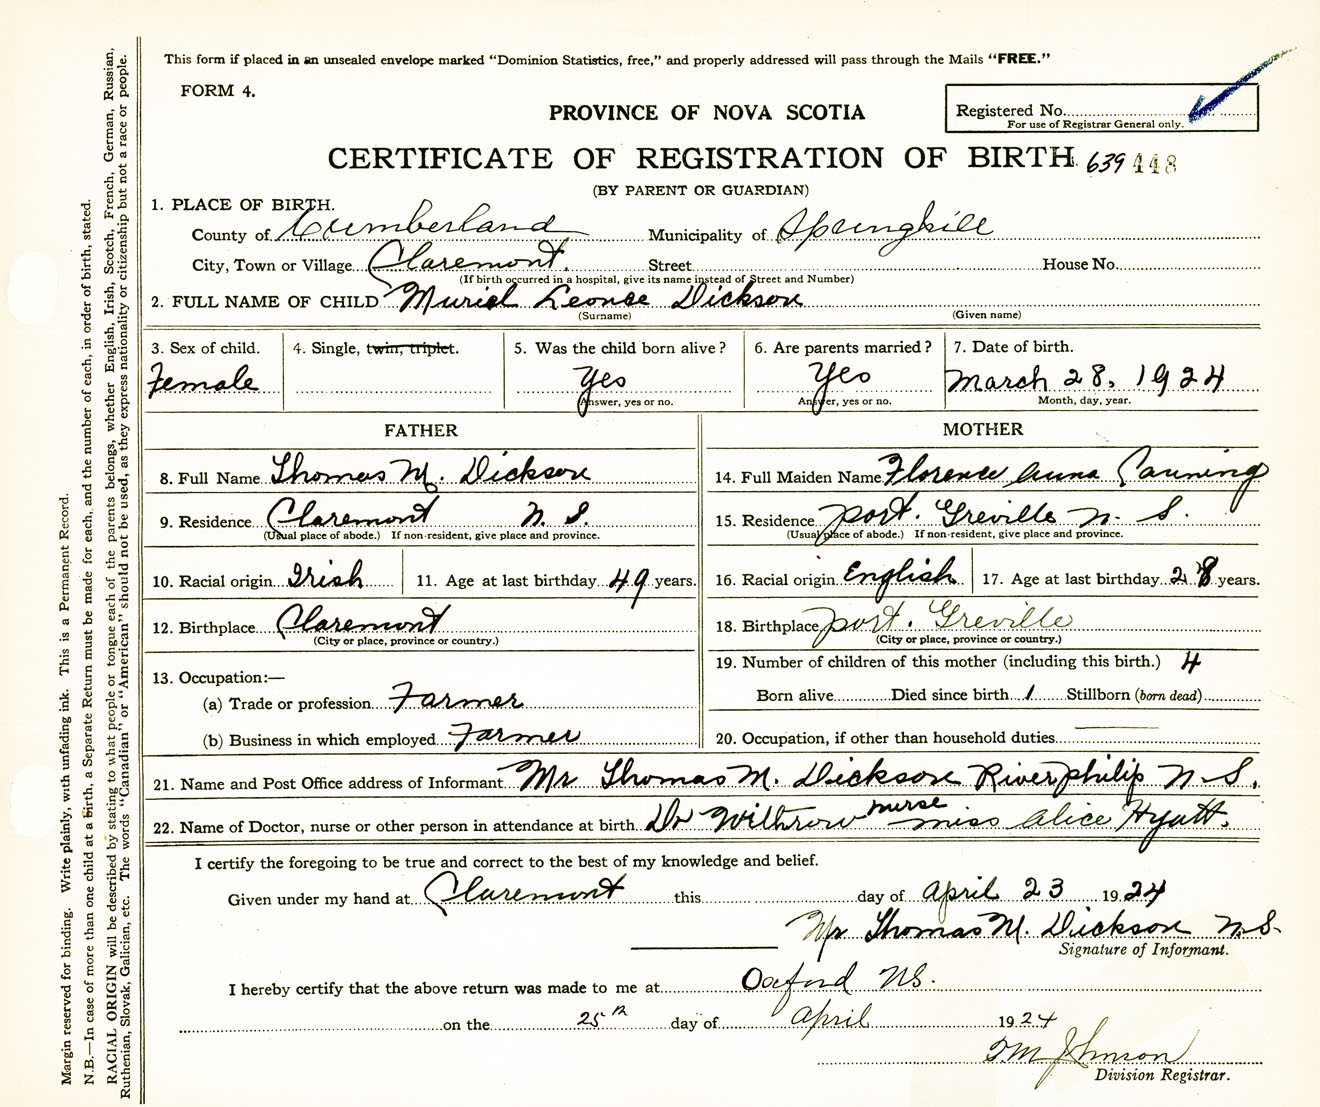 This form if placed in an unsealed envelope marked "Dominion Statistics, free," and properly addressed will pass through the Mails "FREE."
FORM 4.
PROVINCE OF NOVA SCOTIA
Registered No.
For use of Registrar General only.
CERTIFICATE OF REGISTRATION OF BIRTH 639 448
(BY PARENT OR GUARDIAN)
1. PLACE OF BIRTH.
County of Cumberland Municipality of Springhill
City, Town or Village Claremont. Street House No.
(If birth occurred in a hospital, give its name instead of Street and Number)
2. FULL NAME OF CHILD Muriel Leonce Dickson
(Surname) (Given name)
3. Sex of child. 4. Single, twin, triplet. 5. Was the child born alive? 6. Are parents married? 7. Date of birth.
Female Yes Yes March 28, 1924
Answer, yes or no. Answer, yes or no. Month, day, year.
FATHER MOTHER
8. Full Name Thomas M. Dickson 14. Full Maiden Name Florence Anna Canning
9. Residence Claremont N. S. 15. Residence port. Greville N. S.
(Usual place of abode.) If non-resident, give place and province. (Usual place of abode.) If non-resident, give place and province.
10. Racial origin Irish 11. Age at last birthday 49 years. 16. Racial origin English 17. Age at last birthday 28 years.
12. Birthplace Claremont 18. Birthplace port. Greville
(City or place, province or country.) (City or place, province or country.)
13. Occupation:— 19. Number of children of this mother (including this birth.) 4
(a) Trade or profession Farmer Born alive Died since birth 1 Stillborn (born dead)
(b) Business in which employed Farmer 20. Occupation, if other than household duties
21. Name and Post Office address of Informant Mr Thomas M. Dickson River philip N-S.
22. Name of Doctor, nurse or other person in attendance at birth Dr Withrow nurse miss Alice Hyatt.
I certify the foregoing to be true and correct to the best of my knowledge and belief.
Given under my hand at Claremont this day of April 23 1924
Mr Thomas M. Dickson N.S.
Signature of Informant.
I hereby certify that the above return was made to me at Oxford NS.
on the 25th day of April 1924
Johnson
Division Registrar.
Margin reserved for binding. Write plainly, with unfading ink. This is a Permanent Record.
N.B.—In case of more than one child at a birth, a Separate Return must be made for each, and the number of each, in order of birth, stated.
RACIAL ORIGIN will be described by stating to what people or tongue each of the parents belongs, whether English, Irish, Scotch, French, German, Russian,
Ruthenian, Slovak, Galician, etc. The words "Canadian" or "American" should not be used, as they express nationality or citizenship but not a race or people.